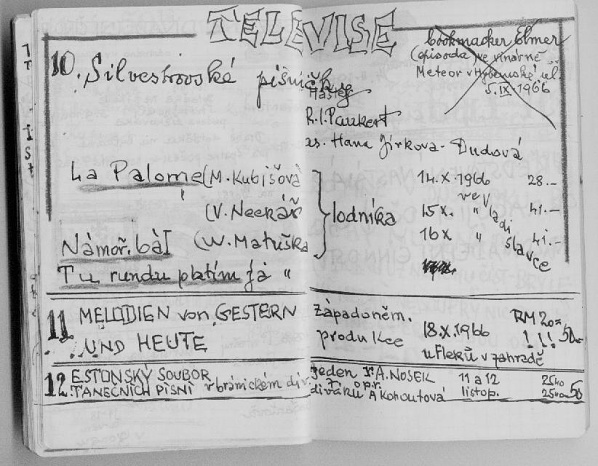 TELEVISE
bookmacker Elmer
(episoda ve vinárně
Meteor v Hybernské ul.
5.IX.1966
10. Silvestrovské písničky
Hašler
R.I.Paukert
as. Hana Jirkova-Dudová
La Palome (M. Kubišova 14.X.1966 28.-
(V. Neckář lodníka 15 X. " 41.-
Námoř. bál (W. Matuška 16 X. " 41.-
ve Vladislavce
Tu rundu platím já "
11. MELODIEN von GESTERN západoněm. RM 20=
UND HEUTE produkce 18.X.1966 1 !! 50.-
u Fleků v zahradě
12. ESTONSKÝ SOUBOR jeden r. A. NOSEK 11 a 12 25Ko 50
TANEČNÍCH PÍSNÍ v bránickém div. diváků A Kohoutová listop. 25Ko